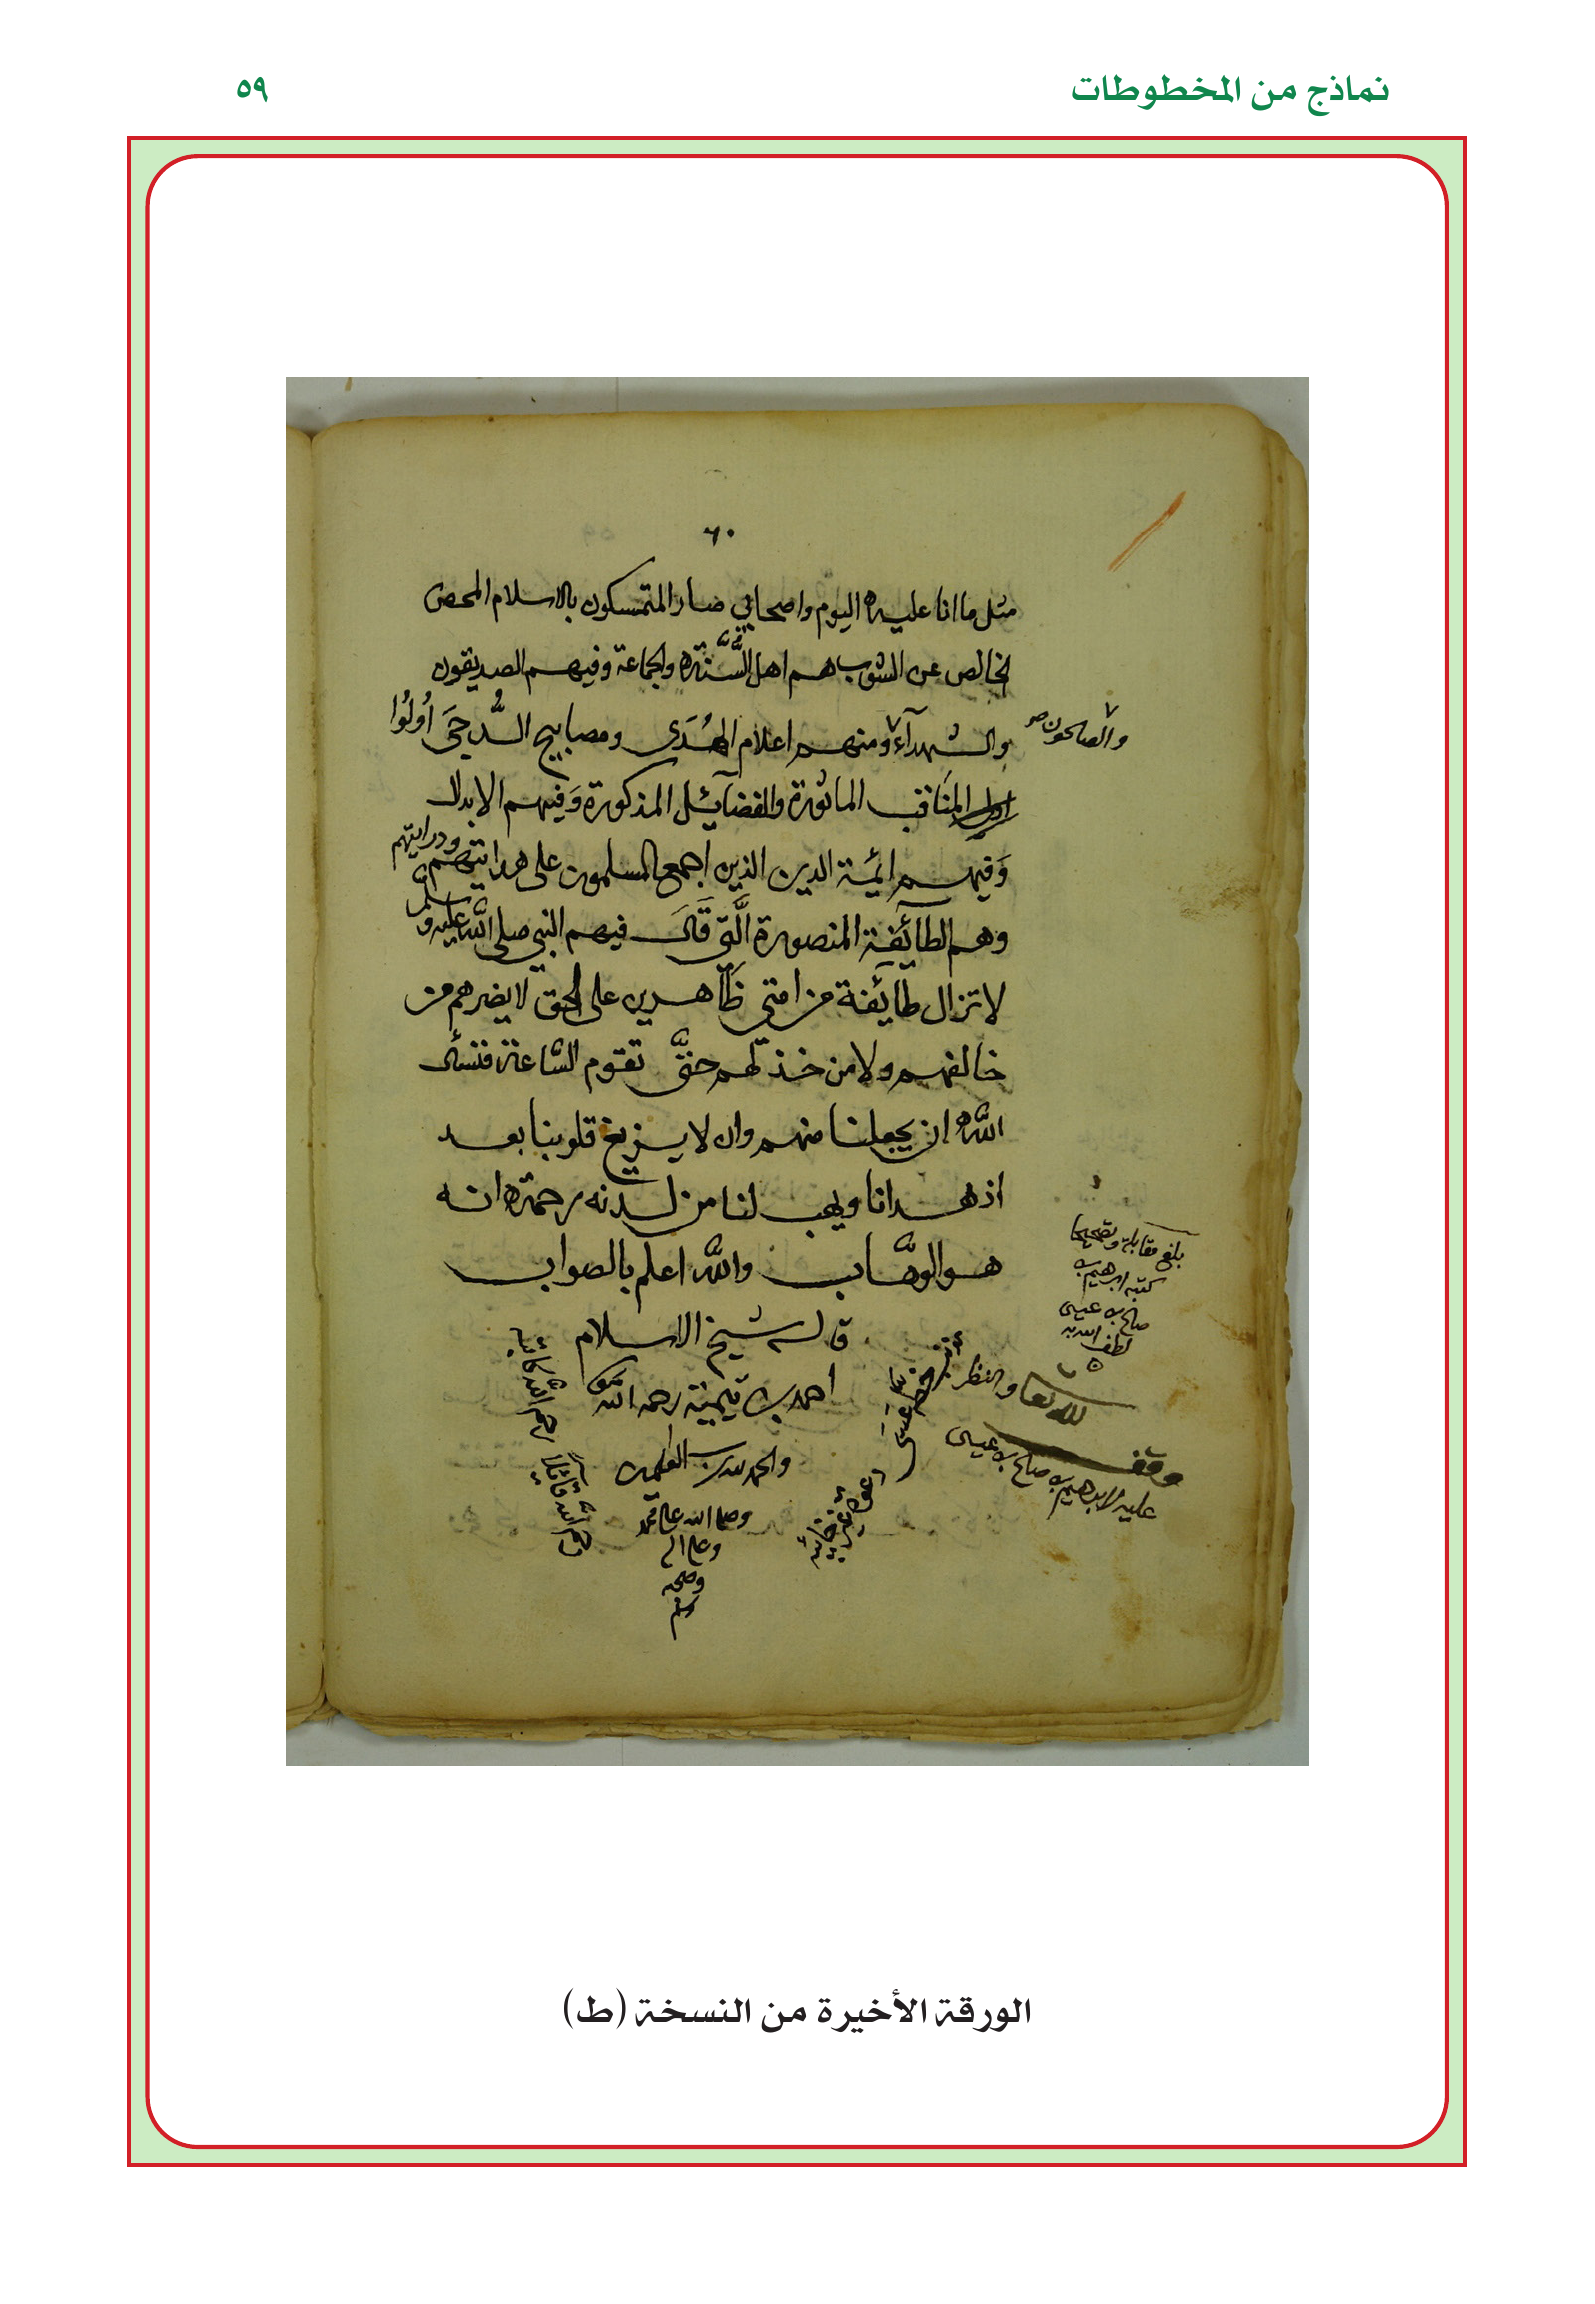 نماذج من المخطوطات
٥٩
٦٠
مثل ما انا عليه اليوم واصحابي صار المتمسكون بالاسلام المحض
الخالص عن الشوب هم اهل السُّنَّة والجماعة وفيهم الصديقون
والشهدآء ومنهم اعلام الهُدَى ومصابيح الدُّجَى اُولُوا
والصالحون صح
المناقب الماثورة والفضآئل المذكورة وَفيهم الابدال
وَفيهم ائمة الدين الذين اجمع المسلمون على هدايتهم ودرايتهم
وهم الطآئفة المنصورة الَّتي قَالَ فيهم النبي صلى اللّه عليه وسلم
لا تزال طآئفة من امتي ظاهرين على الحق لا يضرهم من
خالفهم ولا من خذلهم حتَّى تقوم السَّاعة فنسئل
اللّه ان يجعلنا منهم وان لا يزيغ قلوبنا بعد
اذ هدانا ويهب لنا من لدنه رحمة انه
هو الوهَّاب واللّه اعلم بالصواب
قال شيخ الاسلام
احمد بن تيمية رحمه اللّه
والحمد لله رب العلمين
وصلى الله على محمد
وعلى اله
وصحبه
وسلم
بلغ مقابلة وتصحيحا
كتبه ابرهيم بن
صالح بن عيسى
لطف الله به
وقف لله تعا والنظر
عليه لابرهيم بن صالح بن عيسى
رحم اللّه كاتبا
الورقة الأخيرة من النسخة (ط)